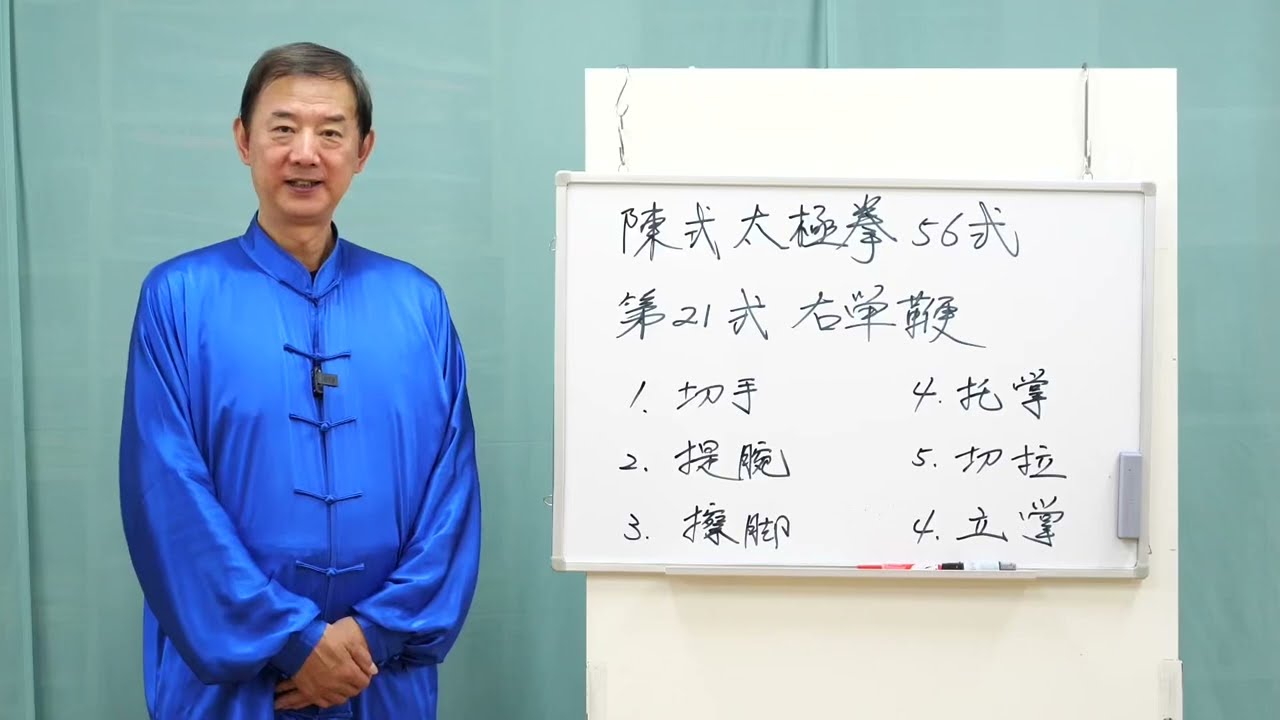 陳式太極拳56式
第21式 右単鞭
1. 切手
2. 提腕
3. 擦脚
4. 托掌
5. 切拉
4. 立掌